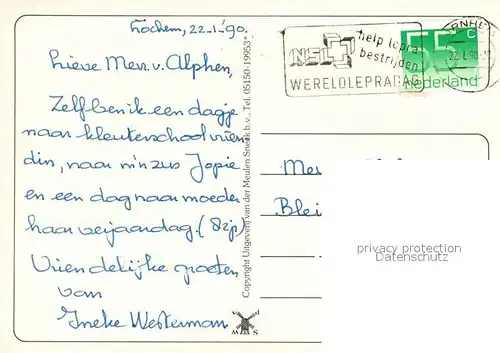 Lochem, 22-1-'90.
Lieve Mev. v. Alphen,
Zelf ben ik een dagje
naar kleuterschool vrien
din, naar m'n zus Jopie
en een dag naar moeder
haar verjaardag. (82 jr)
Vriendelijke groeten
van
Ineke Westerman
Copyright Uitgeverij van der Meulen Sneek b.v., Tel. 05150-19953*
V D
M S
NSL
help lepra
bestrijden
WERELDLEPRADAG
ARNHEM
22.1.90
55 c
nederland
Me
Blei
privacy protection
Datenschutz